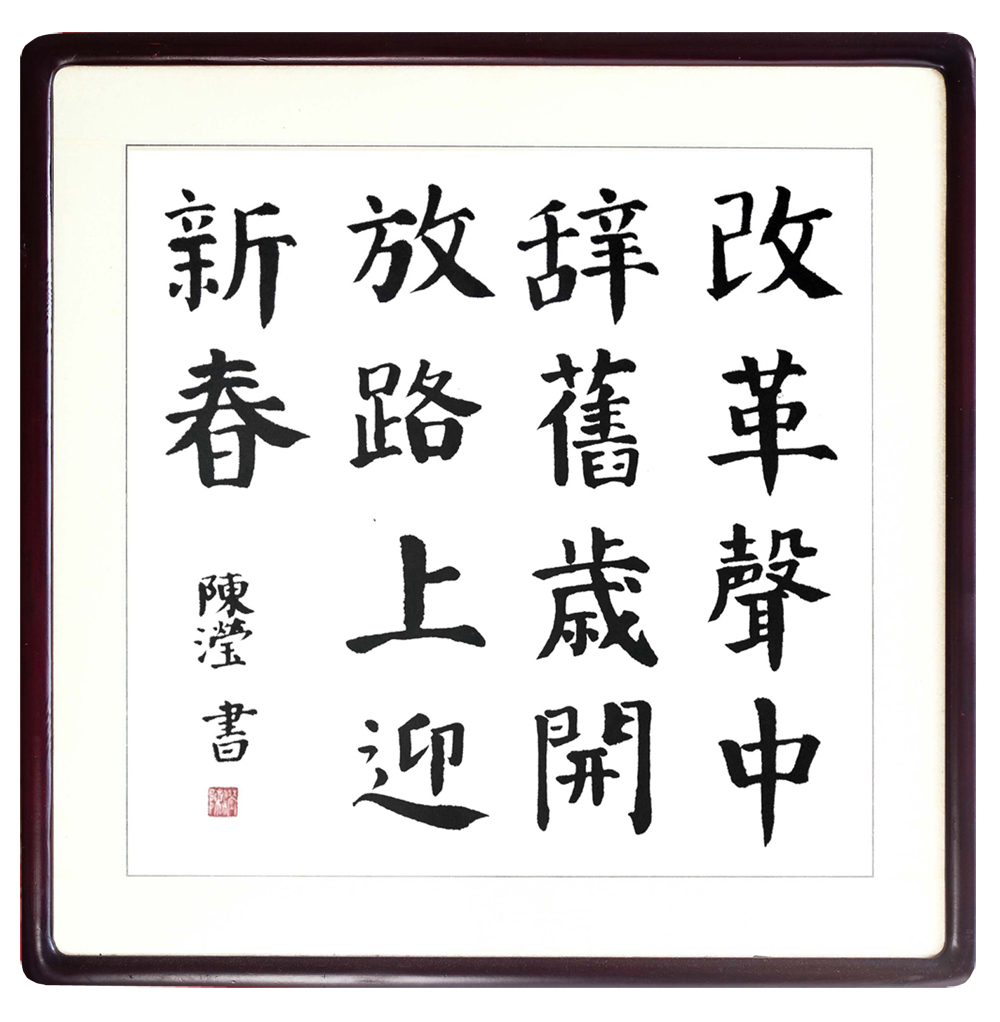 改革聲中
辭舊歲開
放路上迎
新春
陳瀅書